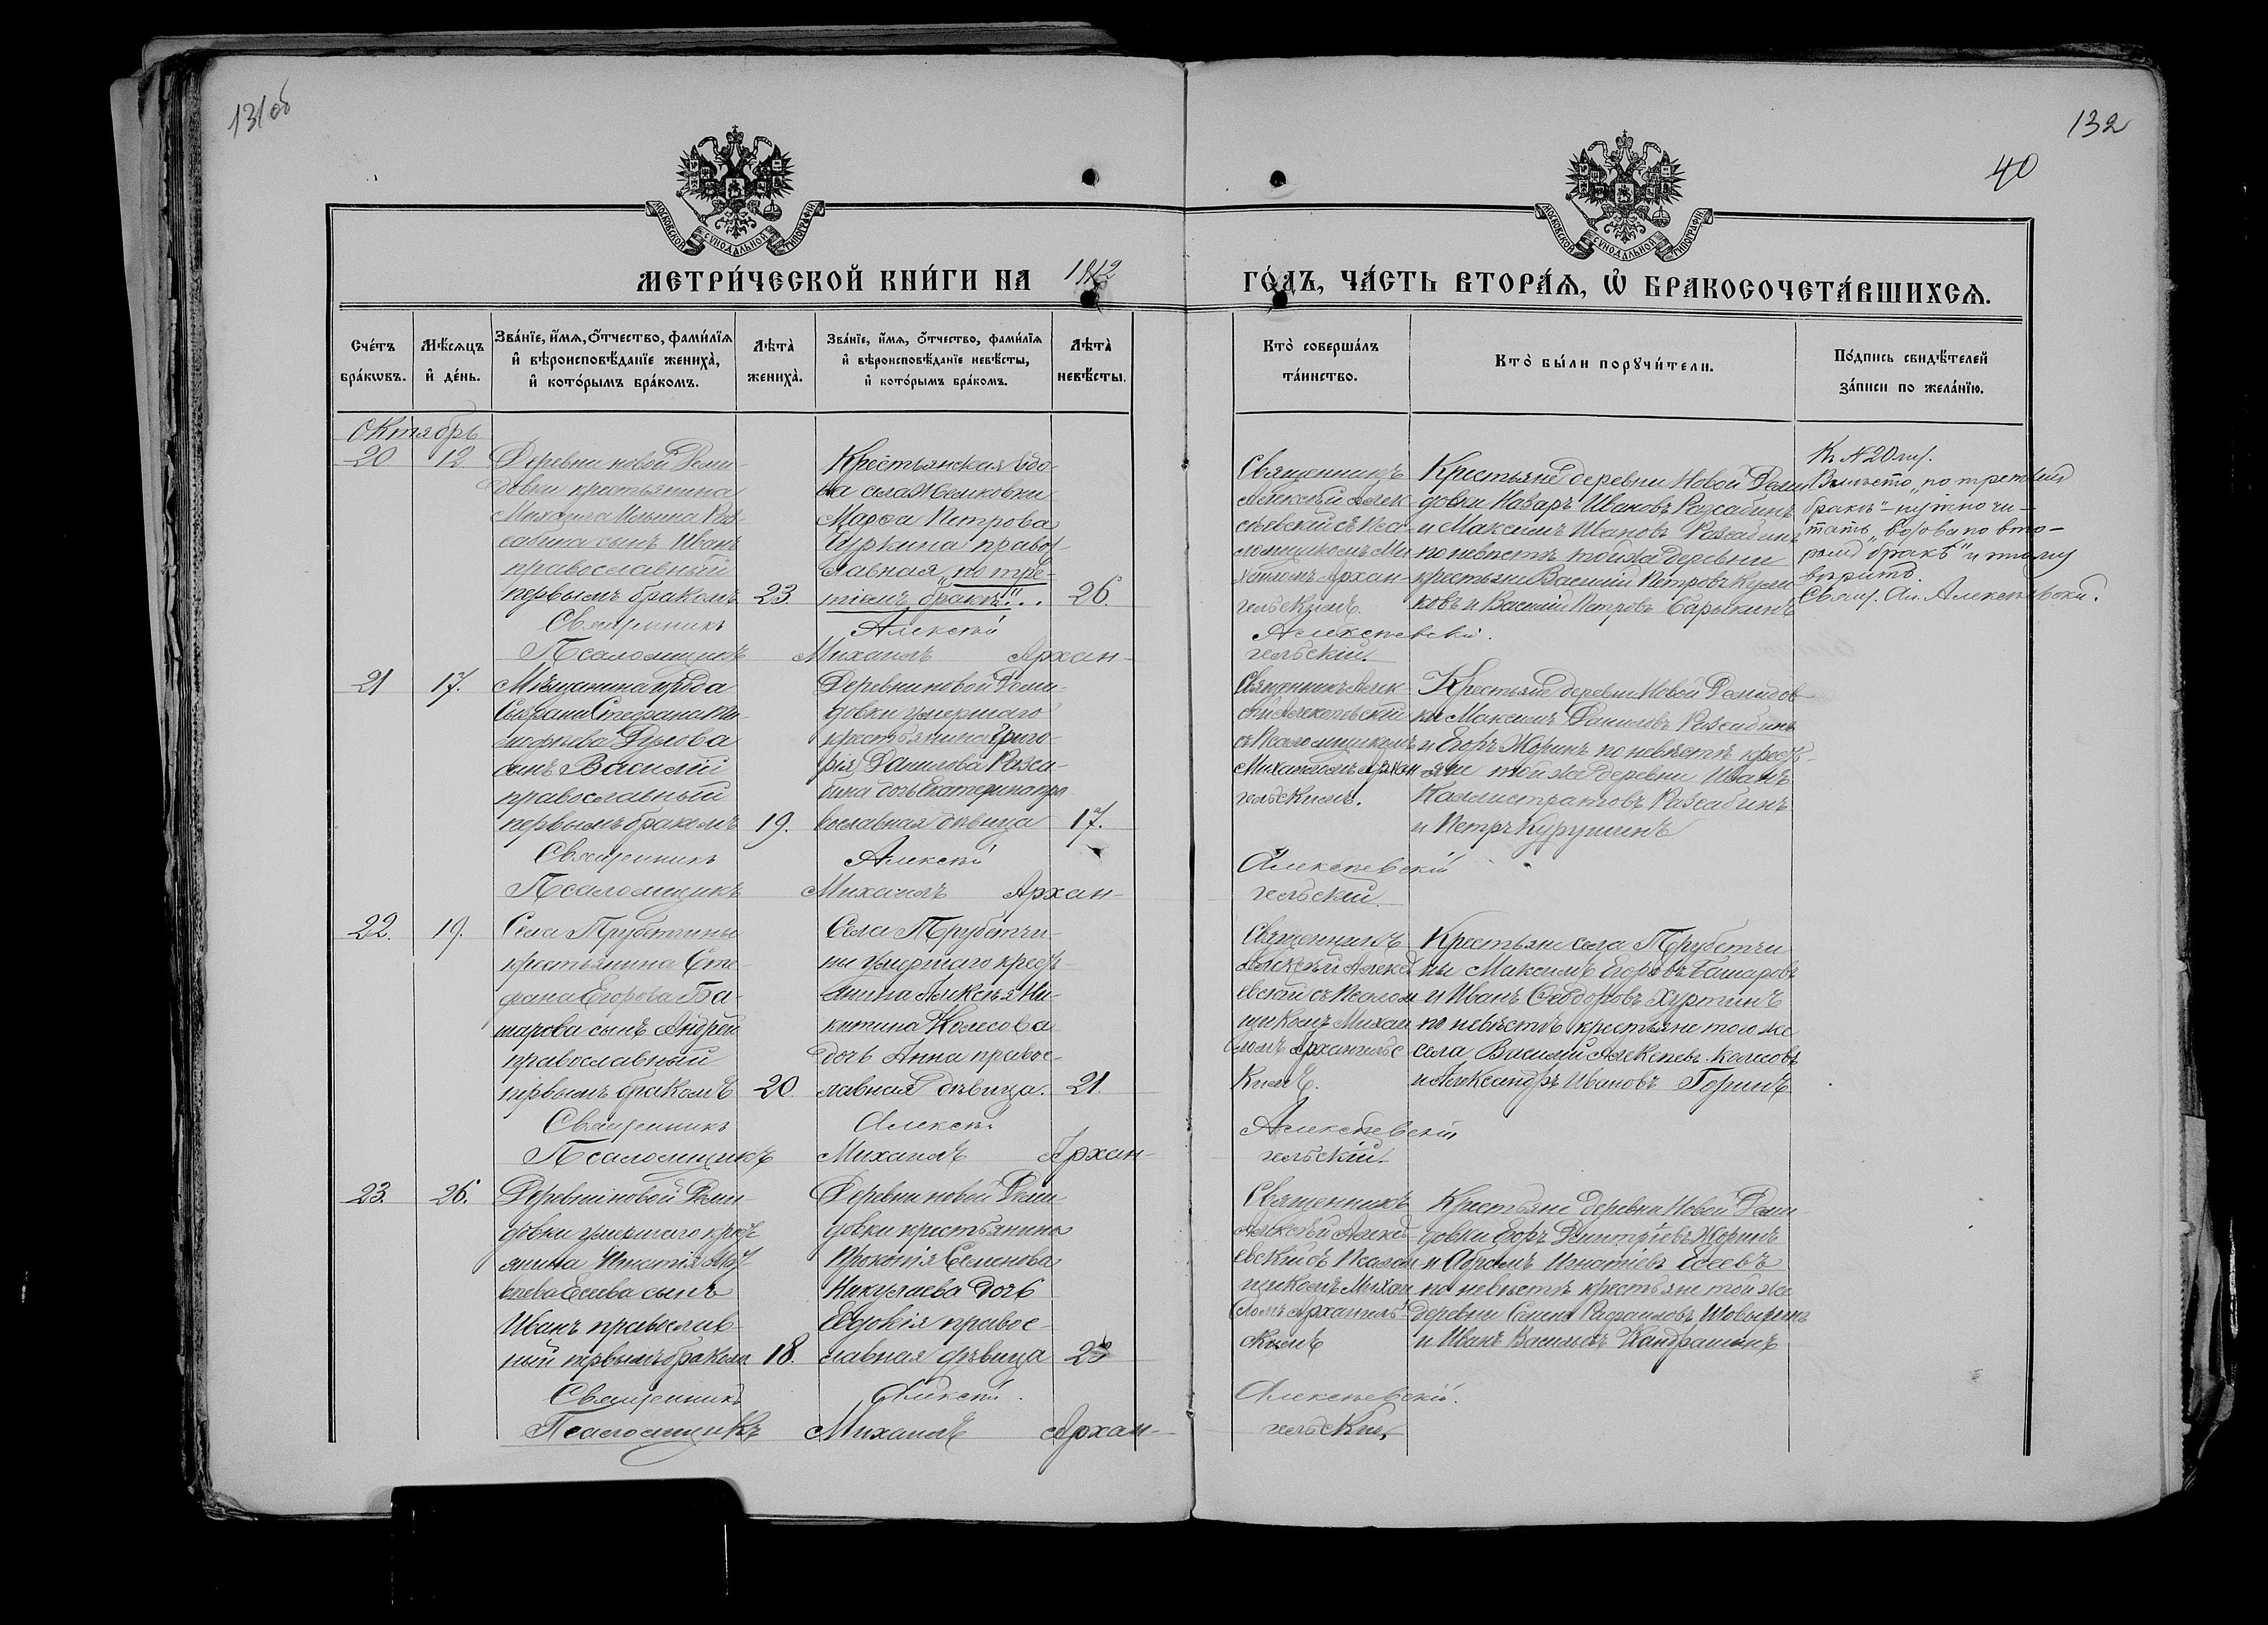 131 об
132
40
МОСКОВСКОЙ СУНОДАЛЬНОЙ ТИПОГРАФІИ
МОСКОВСКОЙ СУНОДАЛЬНОЙ ТИПОГРАФІИ
МЕТРИ́ЧЕСКОЙ КНИ́ГИ НА 1912 ГО́ДЪ, ЧА́СТЬ ВТОРА́Ѧ, Ѽ БРАКОСОЧЕТА́ВШИХСѦ.
Сче́тъ бра́кѡвъ.
Мѣ́сяцъ и҆ де́нь.
Зва́нїе, и҆́мѧ, ѻ҆́тчество, фами́лїѧ и҆ вѣроисповѣ́данїе жениха̀, и҆ кото́рымъ бра́комъ.
Лѣта̀ жениха̀.
Зва́нїе, и҆́мѧ, ѻ҆́тчество, фами́лїѧ и҆ вѣроисповѣ́данїе невѣ́сты, и҆ кото́рымъ бра́комъ.
Лѣта̀ невѣ́сты.
Кто̀ соверша́лъ та́инство.
Кто̀ бы́ли порꙋчи́тели.
По́дпись свидѣ́телей за́писи по жела́нїю.
Октябрь
20
12
Деревни новой Деми-
довки крестьянина
Михаила Ильина Раз-
сабина сынъ Иванъ
православный
первымъ бракомъ
23.
Крестьянская вдо-
ва села
Марѳа Петрова
Чуркина право-
славная „по тре-
тіемъ бракѣ"...
26.
Священникъ
Алексѣй Алек-
сѣевскій съ Пса-
ломщикомъ Ми-
хаиломъ Архан-
гельскимъ.
Крестьяне деревни Новой Деми-
довки Назаръ Ивановъ Разсабинъ
и Максимъ Ивановъ Разсабинъ
по невѣстѣ той же деревни
крестьяне Василій Петровъ Кули-
ковъ и Василій Петровъ Барыкинъ
Къ №20му.
Вмѣсто „по третьемъ
бракѣ" – нужно чи-
тать „вдова по вто-
ромъ бракѣ" и тому
вѣрить.
Свящ. Ал. Алексѣевскій.
Священникъ Алексѣй Алексѣевскій.
Псаломщикъ Михаилъ Архан- гельскій.
21
17.
Мѣщанина города
Сызрани Стефана Ти-
моѳеева Дулова
сынъ Василій
православный
первымъ бракомъ
19.
Деревни новой Деми-
довки умершаго
крестьянина Григо-
рія Данилова Разса-
бина дочь Екатерина пра
вославная дѣвица
17.
Священникъ Алек
сѣй Алексѣевскій
съ Псаломщикомъ
Михаиломъ Архан
гельскимъ.
Крестьяне деревни Новой Демидов-
ки Максимъ Даниловъ Разсабинъ
и Егоръ Жоринъ по невѣстѣ кресть-
яне той же деревни Иванъ
Каллистратовъ Разсабинъ
и Петръ Курушинъ
Священникъ Алексѣй Алексѣевскій
Псаломщикъ Михаилъ Архан- гельскій.
22.
19.
Села Трубетчины
крестьянина Сте-
фана Егорова Ба-
шарова сынъ Андрей
православный
первымъ бракомъ
20
Села Трубетчи-
ны умершаго кресть-
янина Алексѣя Ни-
китина Колесова
дочь Анна правос-
лавная дѣвица.
21.
Священникъ
Алексѣй Алексѣ
евскій съ Псалом
щикомъ Михаи
ломъ Архангельс
кимъ.
Крестьяне села Трубетчи-
ны Максимъ Егоровъ Башаровъ
и Иванъ Ѳеодоровъ Хуртинъ
по невѣстѣ крестьяне того же
села Василій Алексѣевъ Колесовъ
и Александръ Ивановъ Горинъ
Священникъ Алексѣй Алексѣевскій
Псаломщикъ Михаилъ Архан- гельскій.
23.
26.
Деревни новой Деми-
довки умершаго кресть
янина Игнатія Мат-
вѣева Есеева сынъ
Иванъ православ-
ный первымъ бракомъ
18.
Деревни новой Деми
довки крестьянина
Прокопія Семенова
Никулаева дочь
Евдокія правос-
лавная дѣвица
Священникъ
Алексѣй Алексѣ
евскій съ Псалом-
щикомъ Михаи
ломъ Архангель-
скимъ
Крестьяне деревни Новой Деми-
довки Егоръ Дмитріевъ Жоринъ
и Абрамъ Игнатіевъ Есеевъ
по невѣстѣ крестьяне той же
деревни Рафаиловъ
и Иванъ Васильевъ Кандрашинъ
Священникъ Алексѣй Алексѣевскій.
Псаломщикъ Михаилъ Архан- гельскій